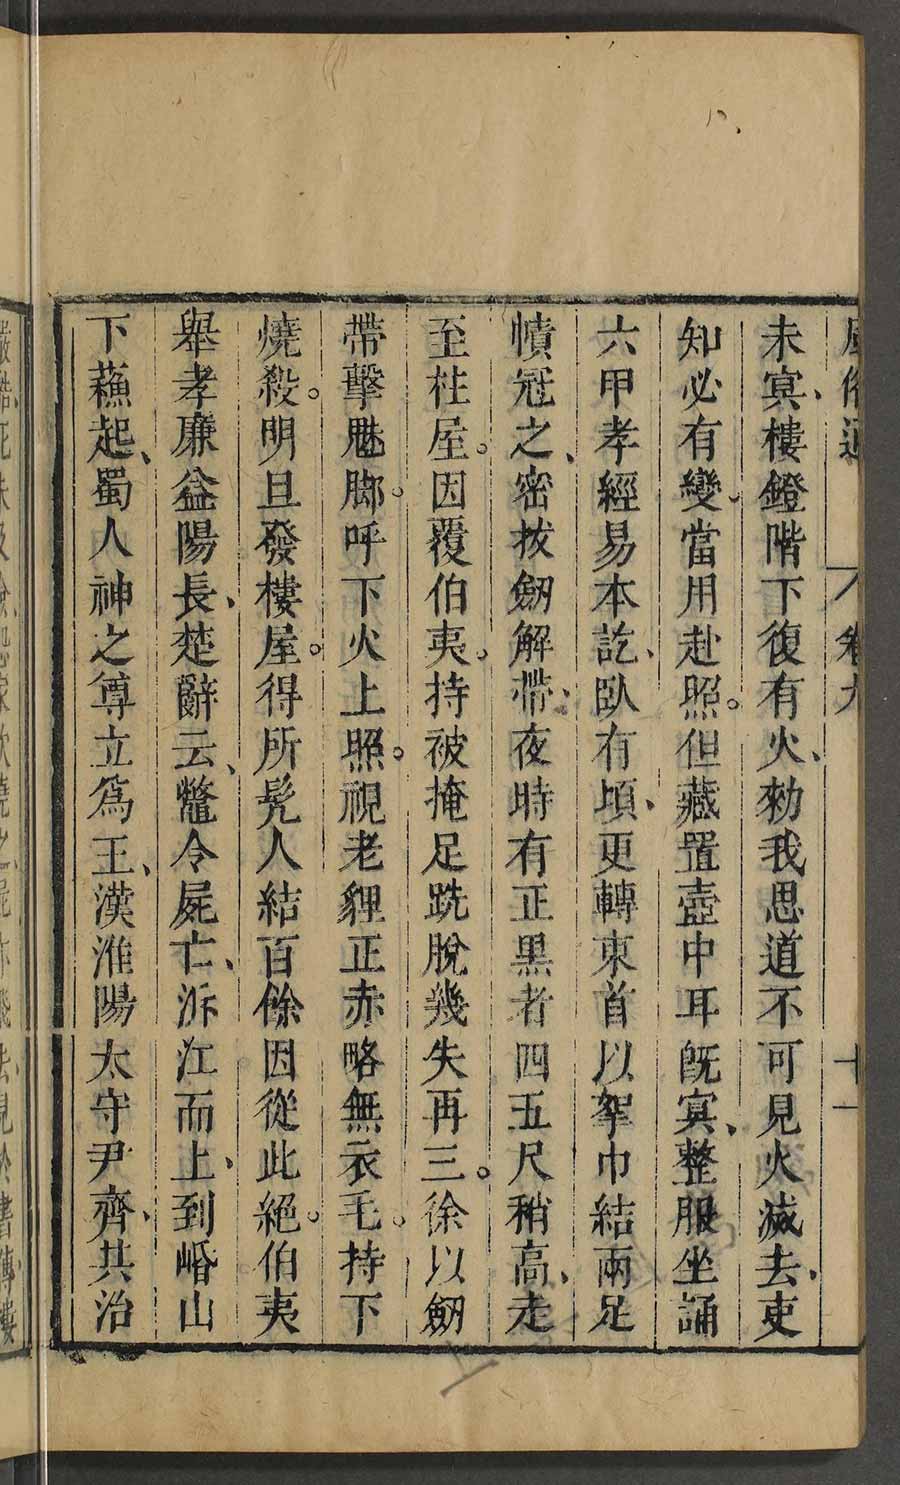 風俗通 卷九 十一
未冥、樓鐙階下復有火、勑我思道不可見火滅去、吏
知必有變、當用赴照。但藏置壺中耳旣冥、整服坐誦
六甲孝經易本訖、臥有頃、更轉東首以挐巾結兩足
幘冠之、密拔劒解帶、夜時有正黑者四五尺稍高、走
至柱屋。因覆伯夷。持被掩足跣脫幾失再三。徐以劒
帶擊魅脚。呼下火上照。視老貍正赤略無衣毛。持下
燒殺。明旦發樓屋。得所髠人結百餘因從此絕。伯夷
舉孝廉益陽長、楚辭云、鼈令屍亡、泝江而上、到崏山
下蘓起、蜀人神之尊立爲王、漢淮陽太守尹齊、共治